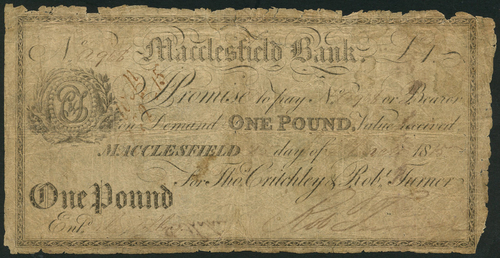 No Macclesfield Bank. £1
I Promise to pay or Bearer
on Demand ONE POUND, Value received
MACCLESFIELD day of 18
For Thos. Critchley & Robt. Turner
One Pound
Entd.